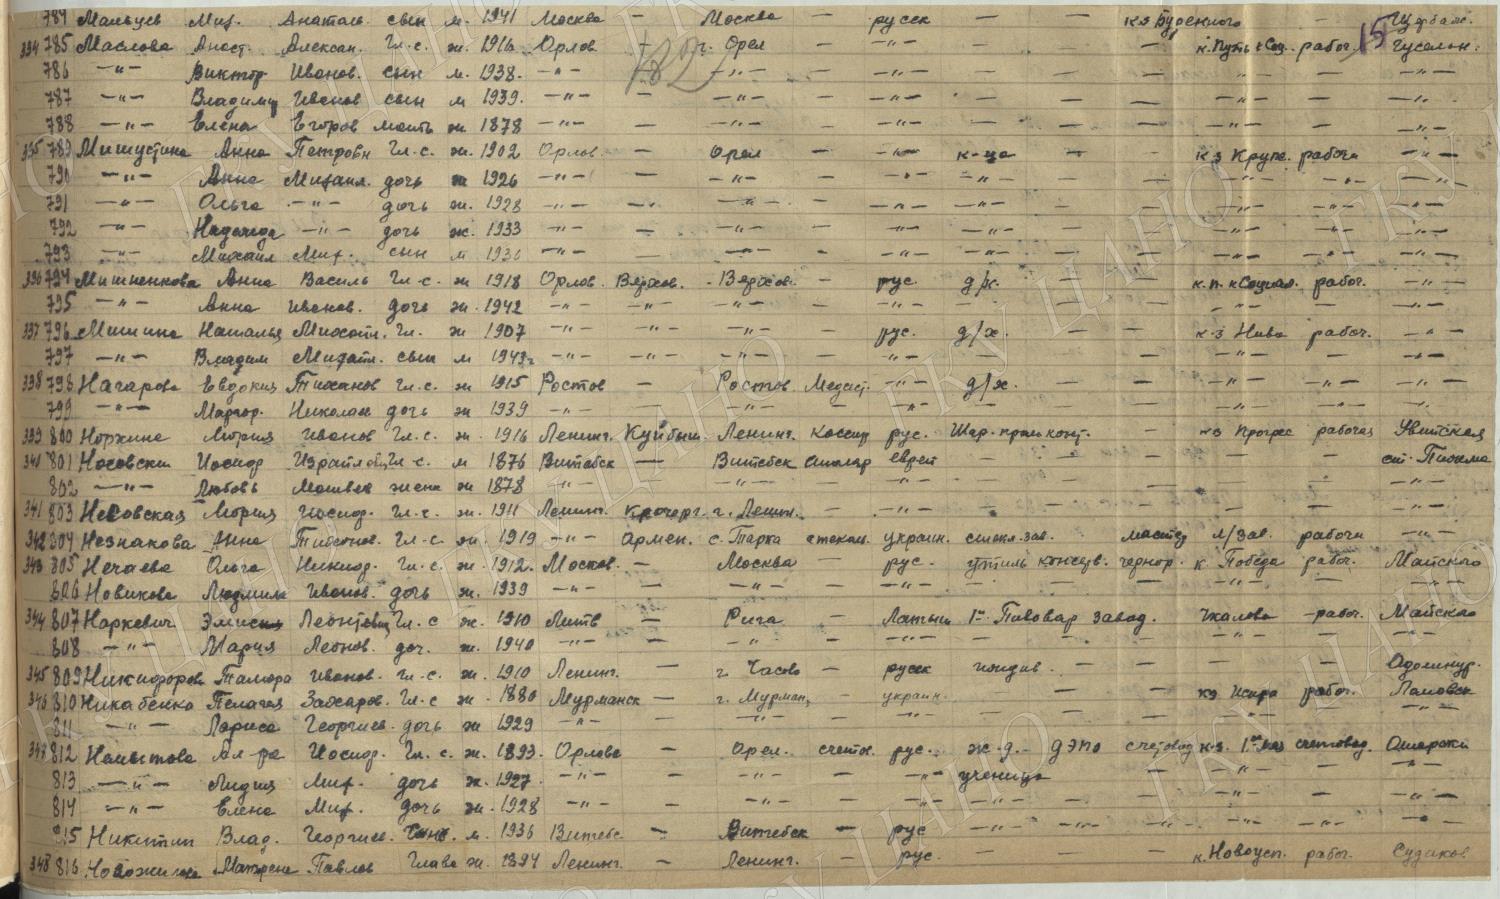 784 Мальцев Мих. Анатол. сын м. 1941 Москва — Москва — русск — — — к-з Буденного — 15 Щербак.
334 785 Маслова Анаст. Алексан. Гл.с. ж. 1916 Орлов. — г. Орел — —"— — — — к. Путь к Соц. рабоч. Гусельн.
786 —"— Виктор Иванов. сын м. 1938. —"— —"— —"— — — — —"— — —"—
787 —"— Владимир Иванов сын м 1939. —"— — —"— — —"— — — — —"— — —"—
788 —"— Елена Егоров мать ж 1878 —"— — —"— — —"— — — — —"— — —"—
335 789 Мишустина Анна Петровн Гл.с. ж. 1902 Орлов. — Орел — —"— к-ца — — к-з Крупс. рабоч —"—
790 —"— Анна Михаил. дочь ж 1926 —"— — —"— — —"— —"— — — —"— —"— —"—
791 —"— Ольга —"— дочь ж. 1928 —"— — —"— — —"— —"— — — —"— —"— —"—
792 —"— Надежда —"— дочь ж. 1933 —"— — —"— — —"— —"— — — —"— —"— —"—
793 —"— Михаил Мих. сын м 1936 —"— — —"— — —"— —"— — — —"— —"— —"—
336 794 Мишненкова Анна Василь Гл.с. ж 1918 Орлов Верхов. Верхов. — рус. д/х. — — к.п. к Социал. рабоч. —"—
795 —"— Анна Иванов. дочь ж. 1942 —"— —"— —"— — —"— — — — —"— — —"—
337 796 Мишина Наталья Гл. ж 1907 —"— —"— —"— — рус. д/х. — — к-з Нива рабоч. —"—
797 —"— Владим Михаил. сын м 1943г —"— —"— —"— — —"— — — — —"— — —"—
338 798 Евдокия Тихонов Гл.с. ж 1915 Ростов — Ростов Медсест. —"— д/х. — — —"— —"— —"—
799 —"— Маргар. Николаев дочь ж 1939 —"— — —"— — —"— — — — — — —"—
339 800 Норкина Мария Иванов Гл.с. ж. 1916 Ленинг. Куйбыш. Ленинг. Кассир рус. — к-з Прогрес рабочая Увитская
340 801 Носовский Иосиф Гл.с. м 1876 Витебск — Витебск столяр еврей — — — — — ст. Пижма
802 —"— Любовь жена ж 1878 —"— —"— — —"— — — — — — —"—
341 803 Носовская Мария Иосиф. Гл.с. ж. 1911 Ленинг. г. Ленин. — —"— — — — — — —"—
342 804 Незнакова Анна Гл.с. ж. 1919 —"— Армен. с. Тарха стекал. украин. стекл. зав. мастер л/зав. рабочи —"—
343 805 Нечаева Ольга Никиф. Гл.с. ж. 1912. Москов. — Москва рус. утиль консерв. чернор. к. Победа рабоч. Майского
806 Новикова Людмила Иванов. дочь ж. 1939 —"— — —"— — —"— — — — —"— — —"—
344 807 Наркевич Леонтовн Гл.с ж. 1910 Литв — Рига — Латыш 1й Пивовар завод. Чкалова рабоч. Майского
808 —"— Мария Леонов. доч. ж. 1940 —"— — —"— — —"— — — — —"— — —"—
345 809 Никифоров Тамара Иванов. гл.с. ж. 1910 Ленинг. — г. Часово — русск иждив. — — — — Одошнур.
346 810 Пелагея Захаров. Гл.с ж. 1880 Мурманск — г. Мурман. украин. — — — к-з Искра рабоч. Ломовск
811 —"— Лариса Георгиев. дочь ж 1929 —"— — —"— — —"— — — — —"— — —"—
347 812 Ал-ра Иосиф. Гл.с. ж. 1893. Орлова — Орел. счетов. рус. ж-д. ДЭПО счетовод к-з. 1е мая счетовод. Ошарски
813 —"— Лидия Мих. дочь ж. 1927 —"— — —"— — —"— ученица — — —"— — —"—
814 —"— Елена Мих. дочь ж. 1928 —"— — —"— — —"— — — — —"— — —"—
815 Никитин Влад. Георгиев. м. 1936 Витебс — Витебск — рус —"— —"— — —"— —"— —"—
348 816 Новожилова Матрена Павлов Глава ж. 1894 Ленинг. — Ленинг. — рус. — — — к. Новоусп. рабоч. Судаков